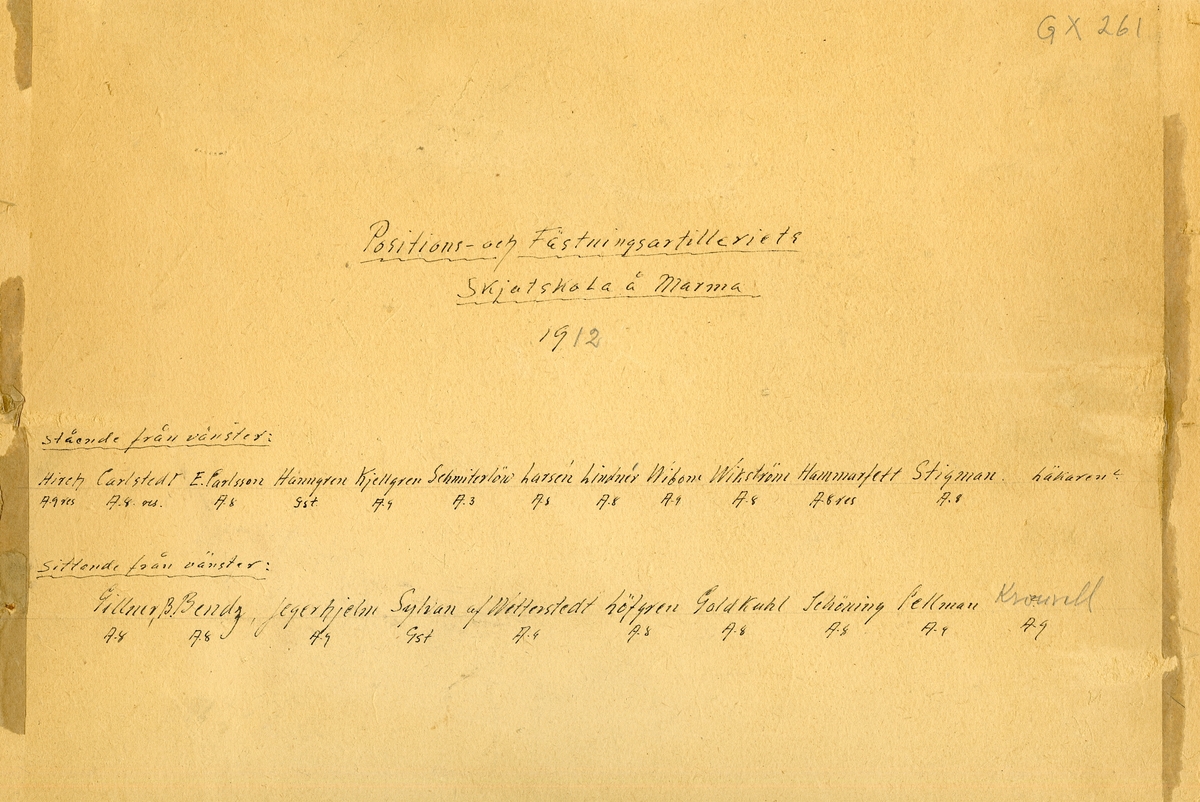 GX 261
Positions- och Fästningsartilleriets
Skjutskola å Marma
1912
Stående från vänster:
Hirch Carlstedt E. Carlsson Hanngren Kjellgren Schmiterlöw Larsén Lindnér Wikström Hammarfelt Stigman. Läkaren
A.9 res A.8. res. A.8 Gst A.9 A.3 A.8 A.8 A.9 A.8 A.8 res A.8
Sittande från vänster:
Gillner, B. Bendz, Jegerhjelm Sylvan af Wetterstedt Löfgren Goldkuhl Schöning Pellman
A.8 A.8 A.9 Gst A.9 A.8 A.8 A.8 A.9 A.9